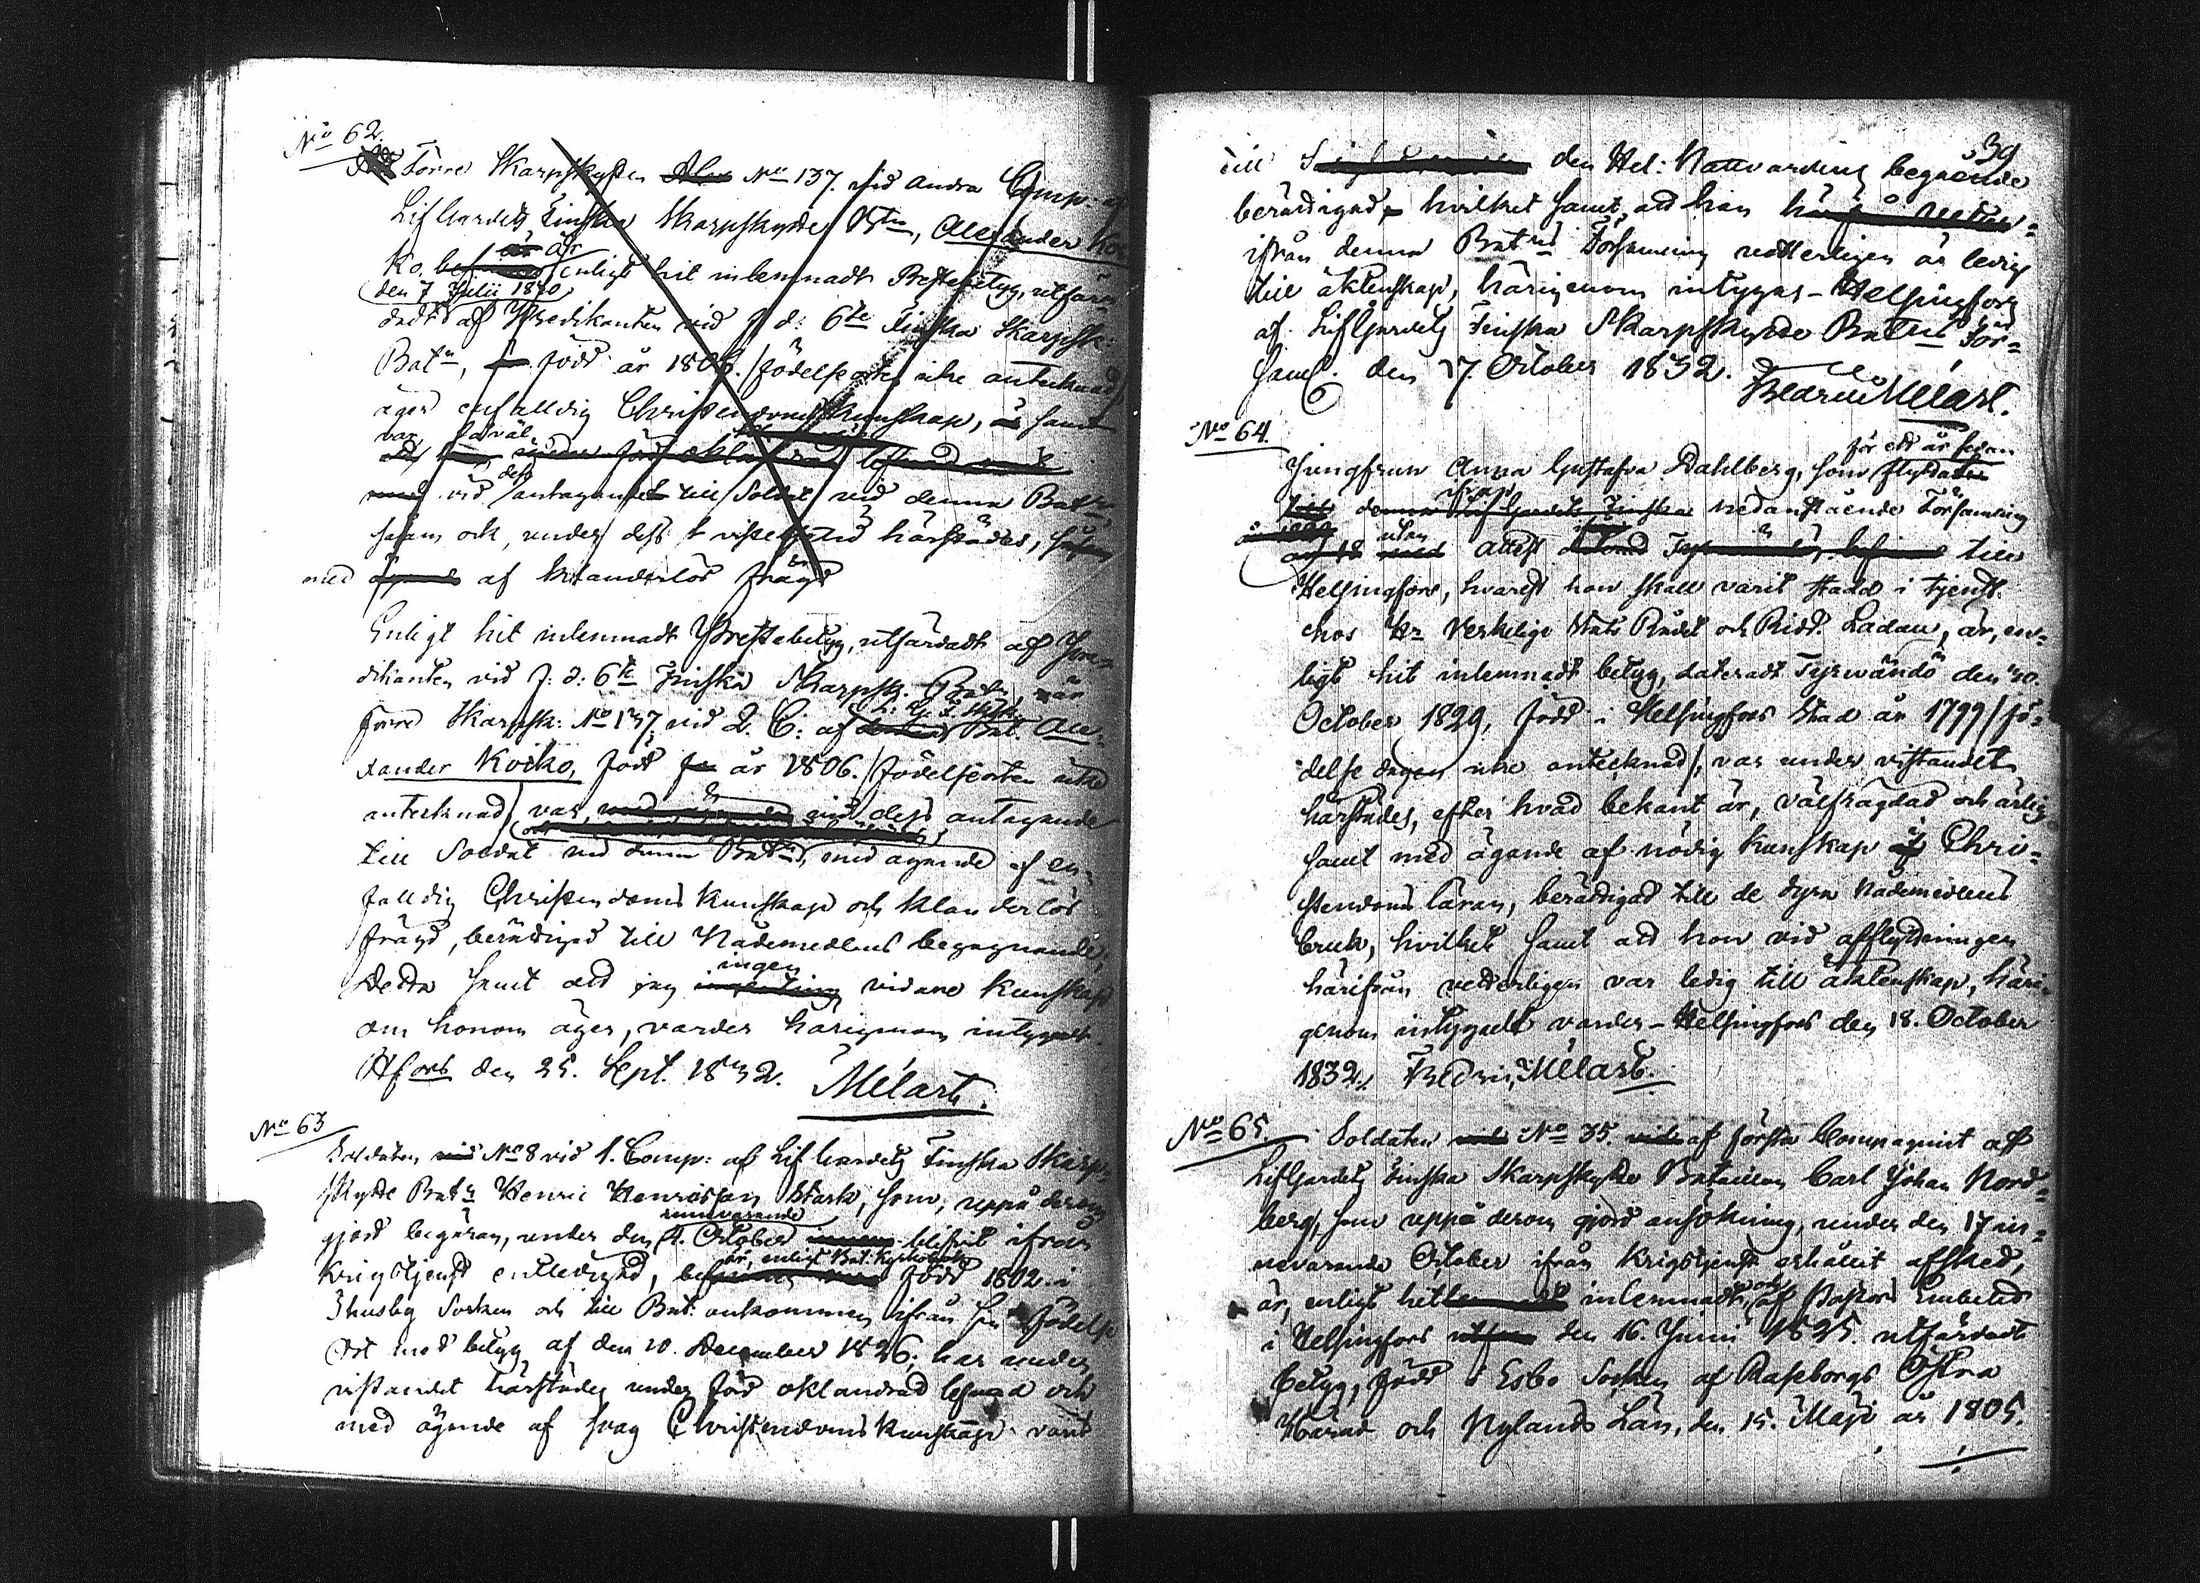 No 62.
Förre Skarpskytten No 137. vid andra Comp. af
LifGardets Finska Skarpskytte Btn, Alexander Koi
ko, är
enligt hit inlemnadt Prestabetyg, utfär-
den 7 Julii 1830
dadt af Predikanten vid f. d. 6te Finska Skarpsk:
Batn, född år 1806. /födelseorten icke antecknad/
äger enfalldig Christendomskunskap, samt
var såväl
vid dess antagande till Soldat vid denna Batn
som ock, under dess vistelsetid härstädes,
med af klanderlös frägd
Enligt hit inlemnadt Prestabetyg, utfärdadt af Pre-
dikanten vid f: d: 6te Finska Skarpsk. Batn, är
förre Skarpsk: No 137, vid 2. C: af L. G. F. Sksk. Bat. Alex-
ander Koiko, född år 1806. /födelseorten icke
antecknad/ var, vid dess antagande
till Soldat vid denna Batn, med ägande af en-
falldig Christendoms kunskap och klanderlös
frägd, berättigad till Nådemedlens begagnande,
Detta samt att jag ingen vidare kunskap
om honom äger, varder härigenom intygadt.
Hfors den 25. Sept. 1832. Melart.
No 63
Soldaten No 8 vid 1. Comp: af LifGardets Finska Skarp-
skytte Batn Henric Henricsson Stark, som, uppå derom
gjord begäran, under den 4. innevarande October blifvit ifrån
Krigstjenst entledigad, är, enligt Bat: Kyrkobok född 1802. i
Thusby Socken och till Bat: ankommen ifrån sin födelse
Ort med betyg af den 10. December 1826; har under
vistandet härstädes under förd oklandrad lefnad och
med ägande af svag Christendoms kunskap varit
39
till den Hel: Nattvardens begående
berättigad, hvilket samt, att han
ifrån denna Batns Församling vetterligen är ledig
till äktenskap, härigenom intygas - Helsingfors
af LifGardets Finska Skarpskytte Batns För-
saml. den 17. October 1832. Fredric Melart.
No 64.
Jungfrun Anna Gustafva Dahlberg, som för ett år sedan flyttade
ifrån nedanstående Församling
utan attest till
Helsingfors, hvarest hon skall varit stadd i tjenst
hos Hr Verkelige Stats Rådet och Ridd. Ladau, är, en-
ligt hit inlemnadt betyg, dateradt Tyrwändö den 30.
October 1829, född i Helsingfors Stad år 1799 /fö-
delse dagen icke antecknad/, var under vistandet
härstädes, efter hvad bekant är, välfrägdad och ärlig
samt med ägande af nödig kunskap i Chri-
stendoms läran, berättigad till de dyra Nådemedlens
bruk, hvilket samt att hon vid afflyttningen
härifrån vetterligen var ledig till äktenskap, häri-
genom intygadt varder - Helsingfors den 18. October
1832. Fredric Melart.
No 65
Soldaten No 35. af första Compagniet af
LifGardets Finska Skarpskytte Bataillon Carl Johan Nord-
berg, som uppå derom gjord ansökning, under den 17 in-
nevarande October ifrån Krigstjenst erhållit afsked,
är, enligt hit inlemnadt, och af Pastors Embetet
i Helsingfors den 16. Junii 1825. utfärdadt
betyg, född i Esbo Socken af Raseborgs Östra
Härad och Nylands Län, den 15. Maji år 1805.